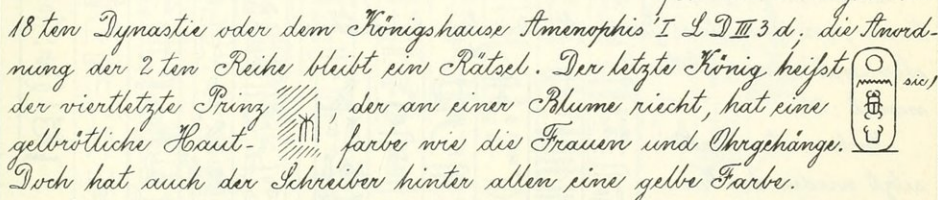 18ten Dynastie oder dem Königshause Amenophis' I L D III 3 d; die Anord-
nung der 2ten Reihe bleibt ein Rätsel. Der letzte König heißt sic!
der viertletzte Prinz , der an einer Blume riecht, hat eine
gelbrötliche Haut- farbe wie die Frauen und Ohrgehänge.
Doch hat auch der Schreiber hinter allen eine gelbe Farbe.